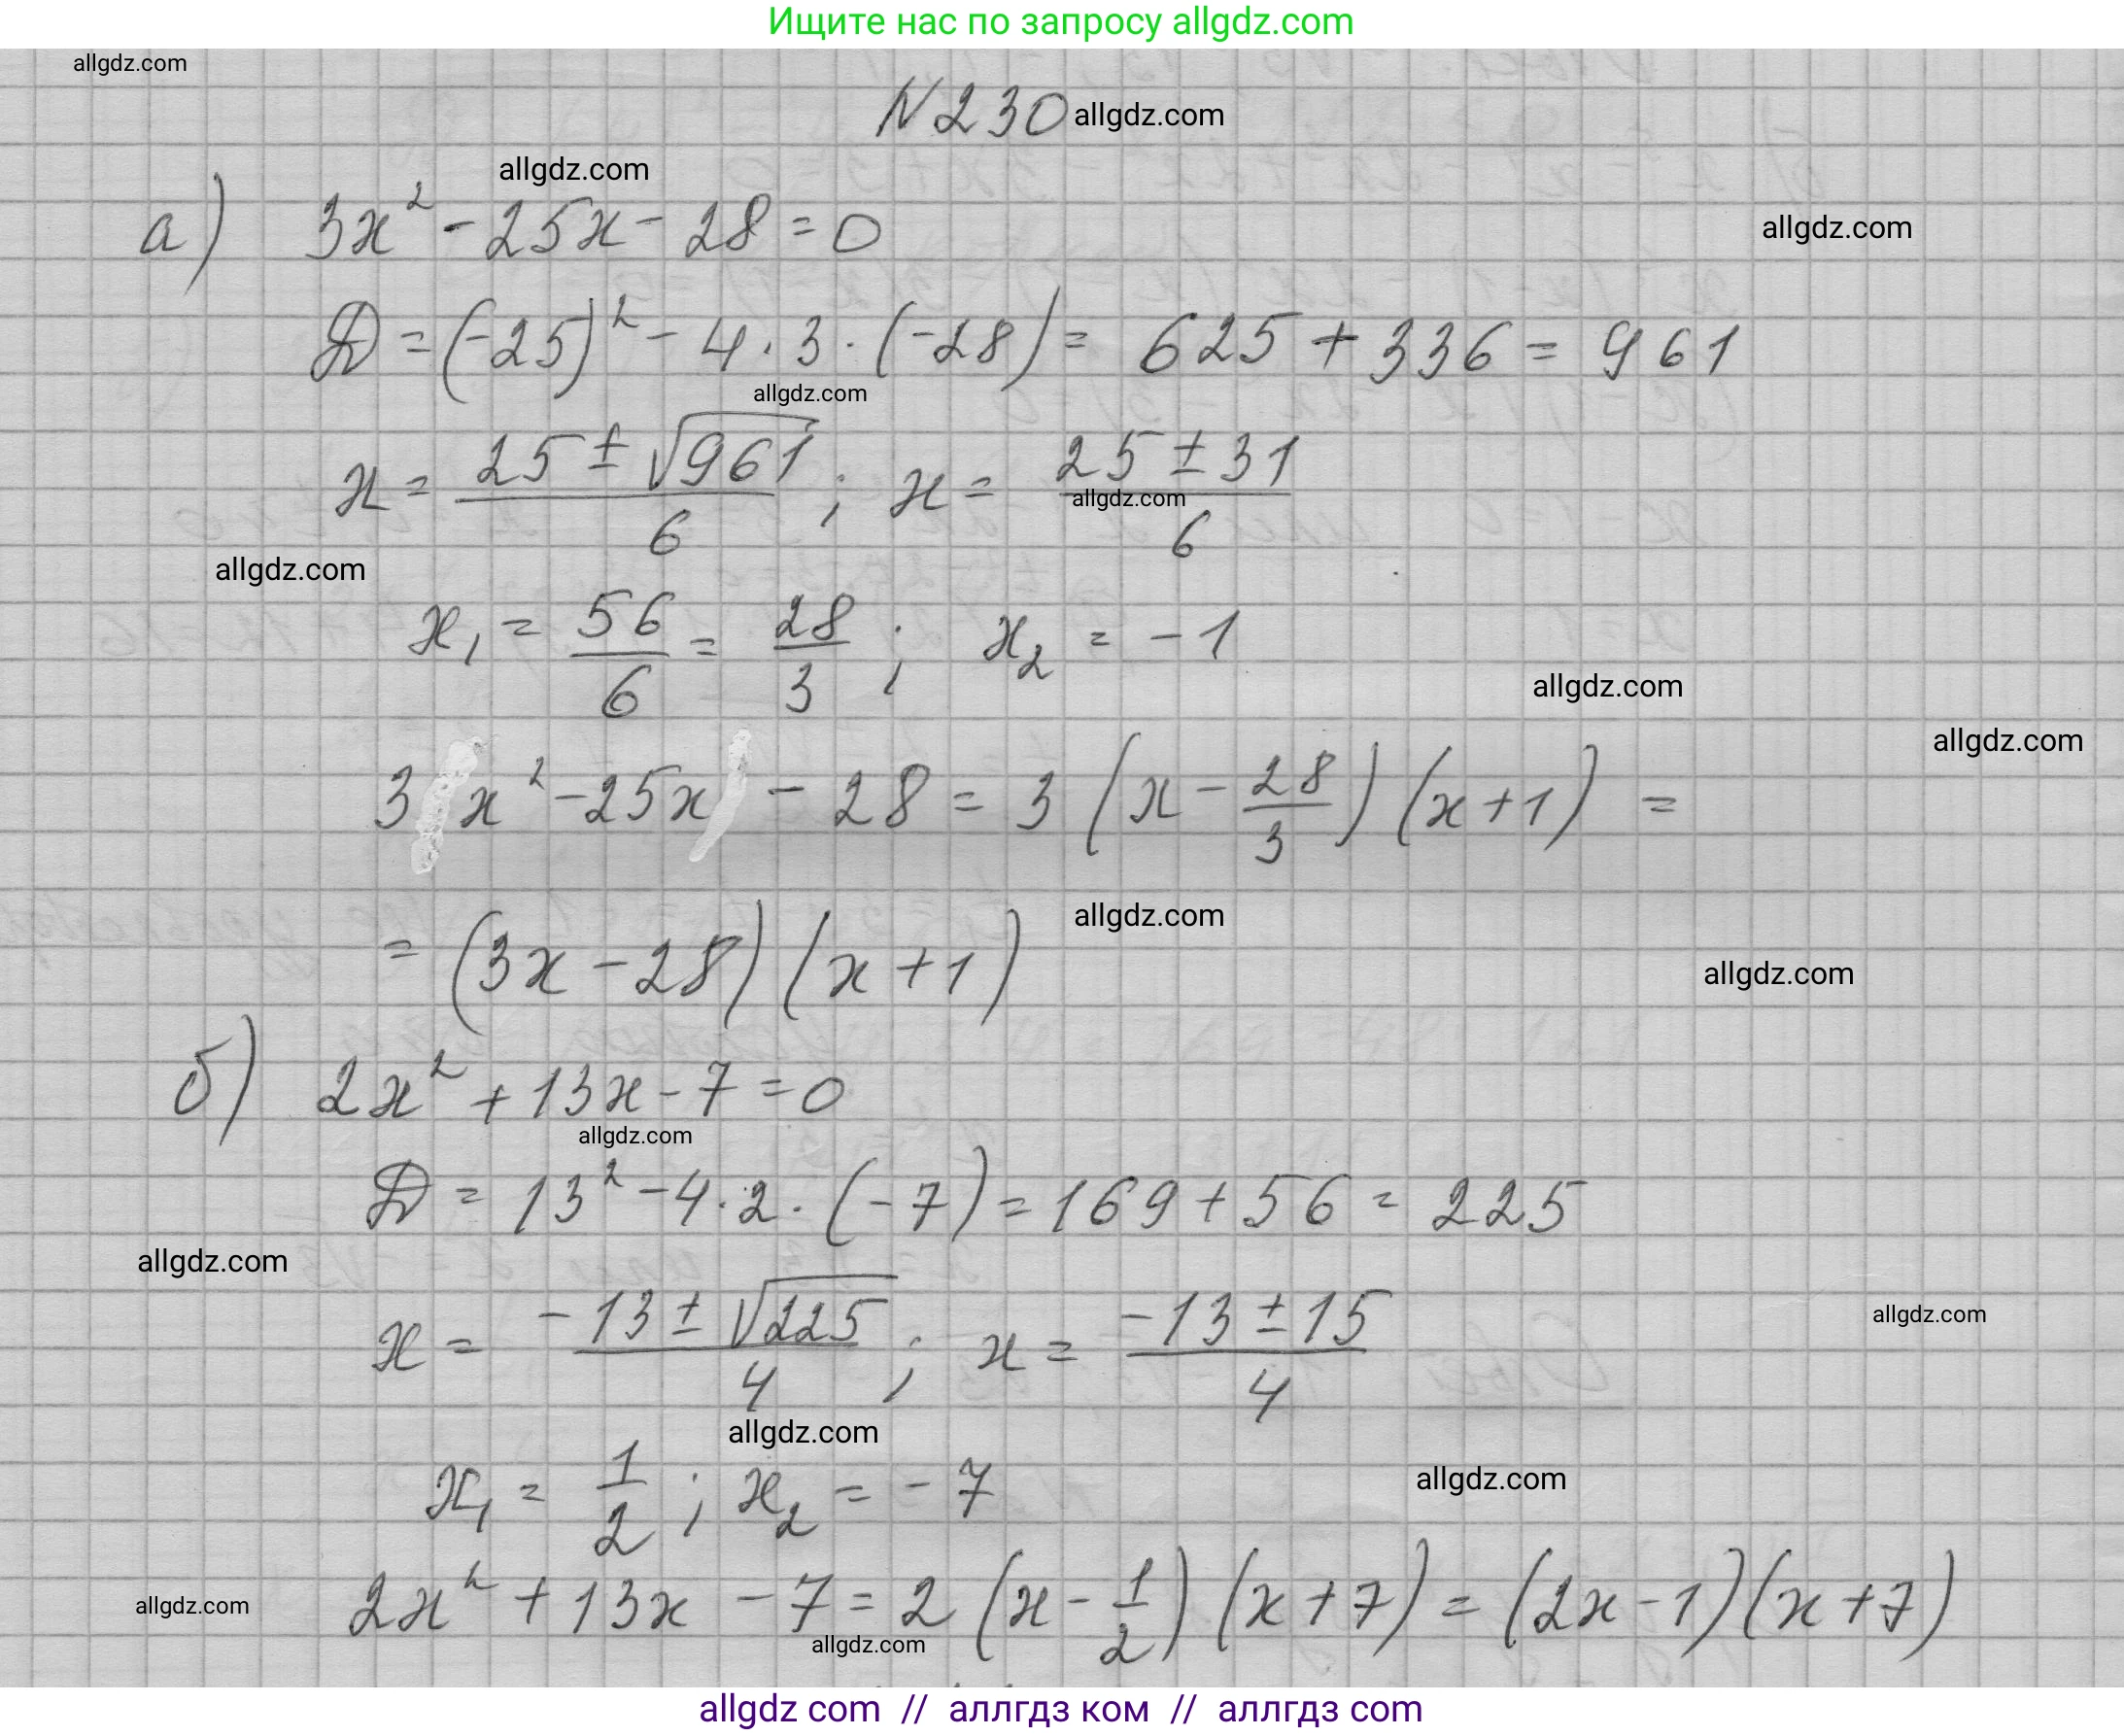 Ищите нас по запросу allgdz.com
allgdz.com
N 230 allgdz.com
allgdz.com
а) 3x² - 25x - 28 = 0
allgdz.com
D = (-25)² - 4 · 3 · (-28) = 625 + 336 = 961
allgdz.com
x = (25 ± √961)/6 ; x = (25 ± 31)/6
allgdz.com
allgdz.com
x₁ = 56/6 = 28/3 ; x₂ = -1
allgdz.com
allgdz.com
3x² - 25x - 28 = 3 (x - 28/3) (x + 1) =
allgdz.com
= (3x - 28) (x + 1)
allgdz.com
б) 2x² + 13x - 7 = 0
allgdz.com
D = 13² - 4 · 2 · (-7) = 169 + 56 = 225
allgdz.com
x = (-13 ± √225)/4 ; x = (-13 ± 15)/4
allgdz.com
allgdz.com
x₁ = 1/2 ; x₂ = -7
allgdz.com
2x² + 13x - 7 = 2 (x - 1/2) (x + 7) = (2x - 1)(x + 7)
allgdz.com
allgdz.com
allgdz com // аллгдз ком // allgdz.com